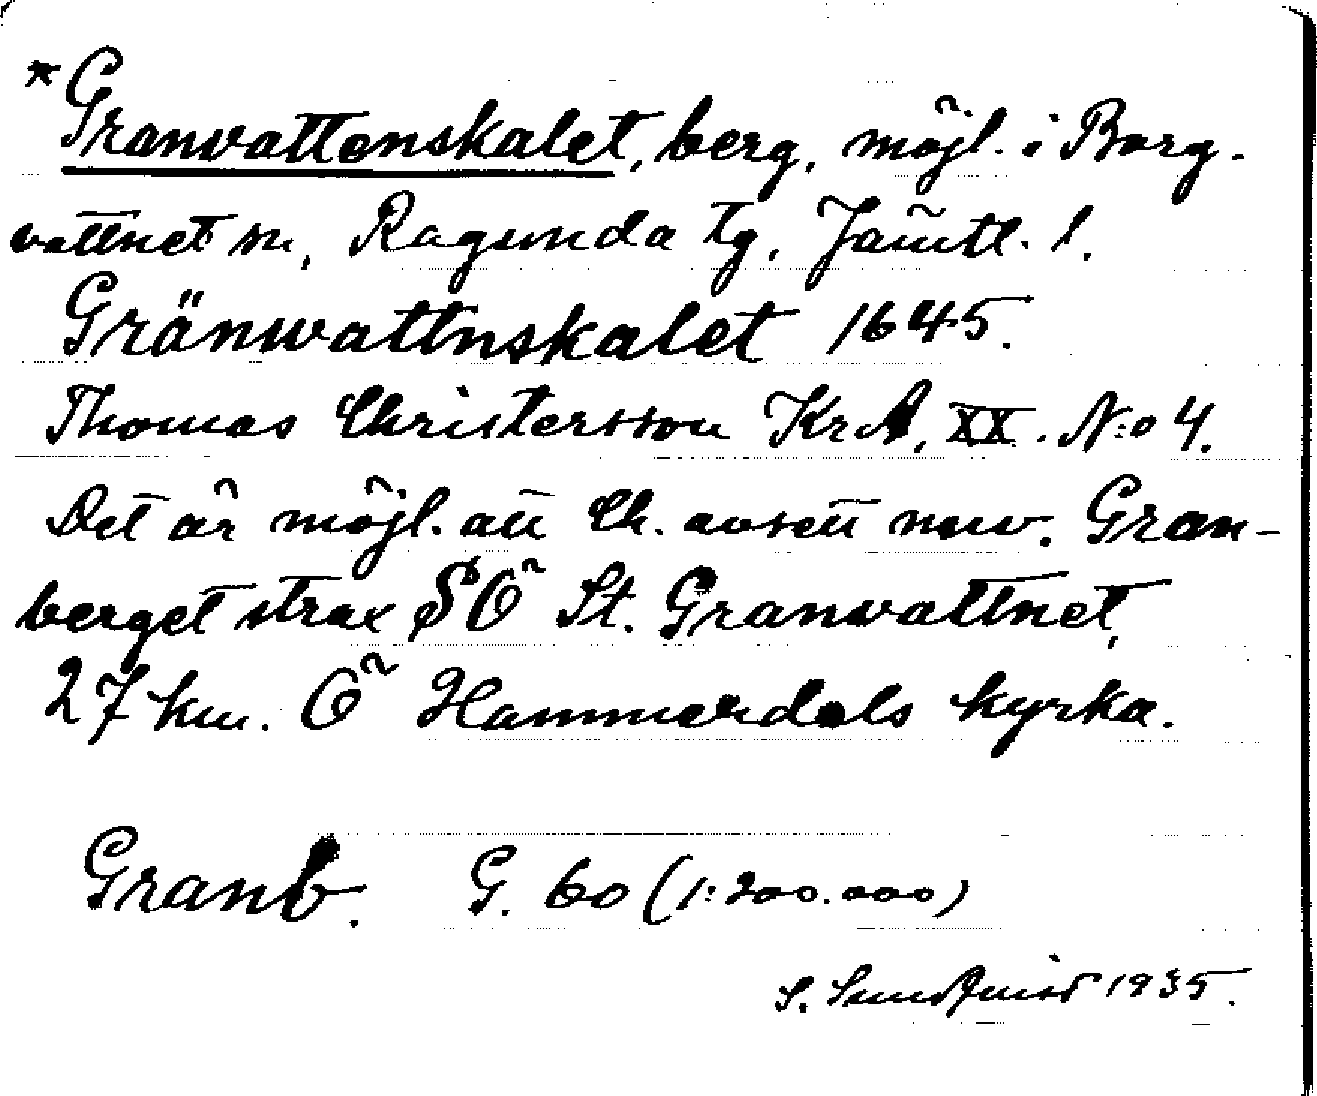 *Granvattenskalet, berg, möjl. i Borg-
vattnet sn, Ragunda tg, Jämtl. l.
Gränwattnskalet 1645.
Thomas Christersson KrA, XX. N:o 4.
Det är möjl. att Ch. avsett nuv. Gran-
berget strax SÖ St. Granvattnet,
27 km. Ö Hammerdals kyrka.
Granb. G. 60 (1:200.000)
S. Sundquist 1935.